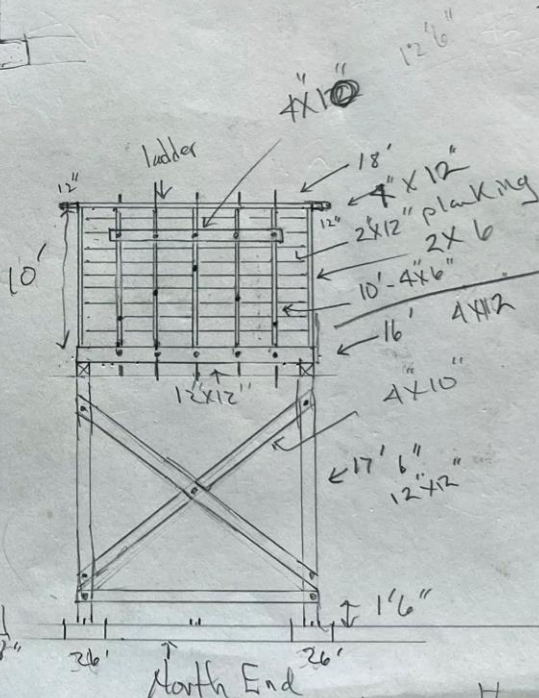 12'6"
4"X12"
ladder
18'
12"
4" X 12"
12"
2"X12" planking
2 X 6
10'
10'-4"X6"
4X12
16'
12"X12"
4"X10"
17' 6"
12"X12"
1'6"
8"
26'
26'
North End